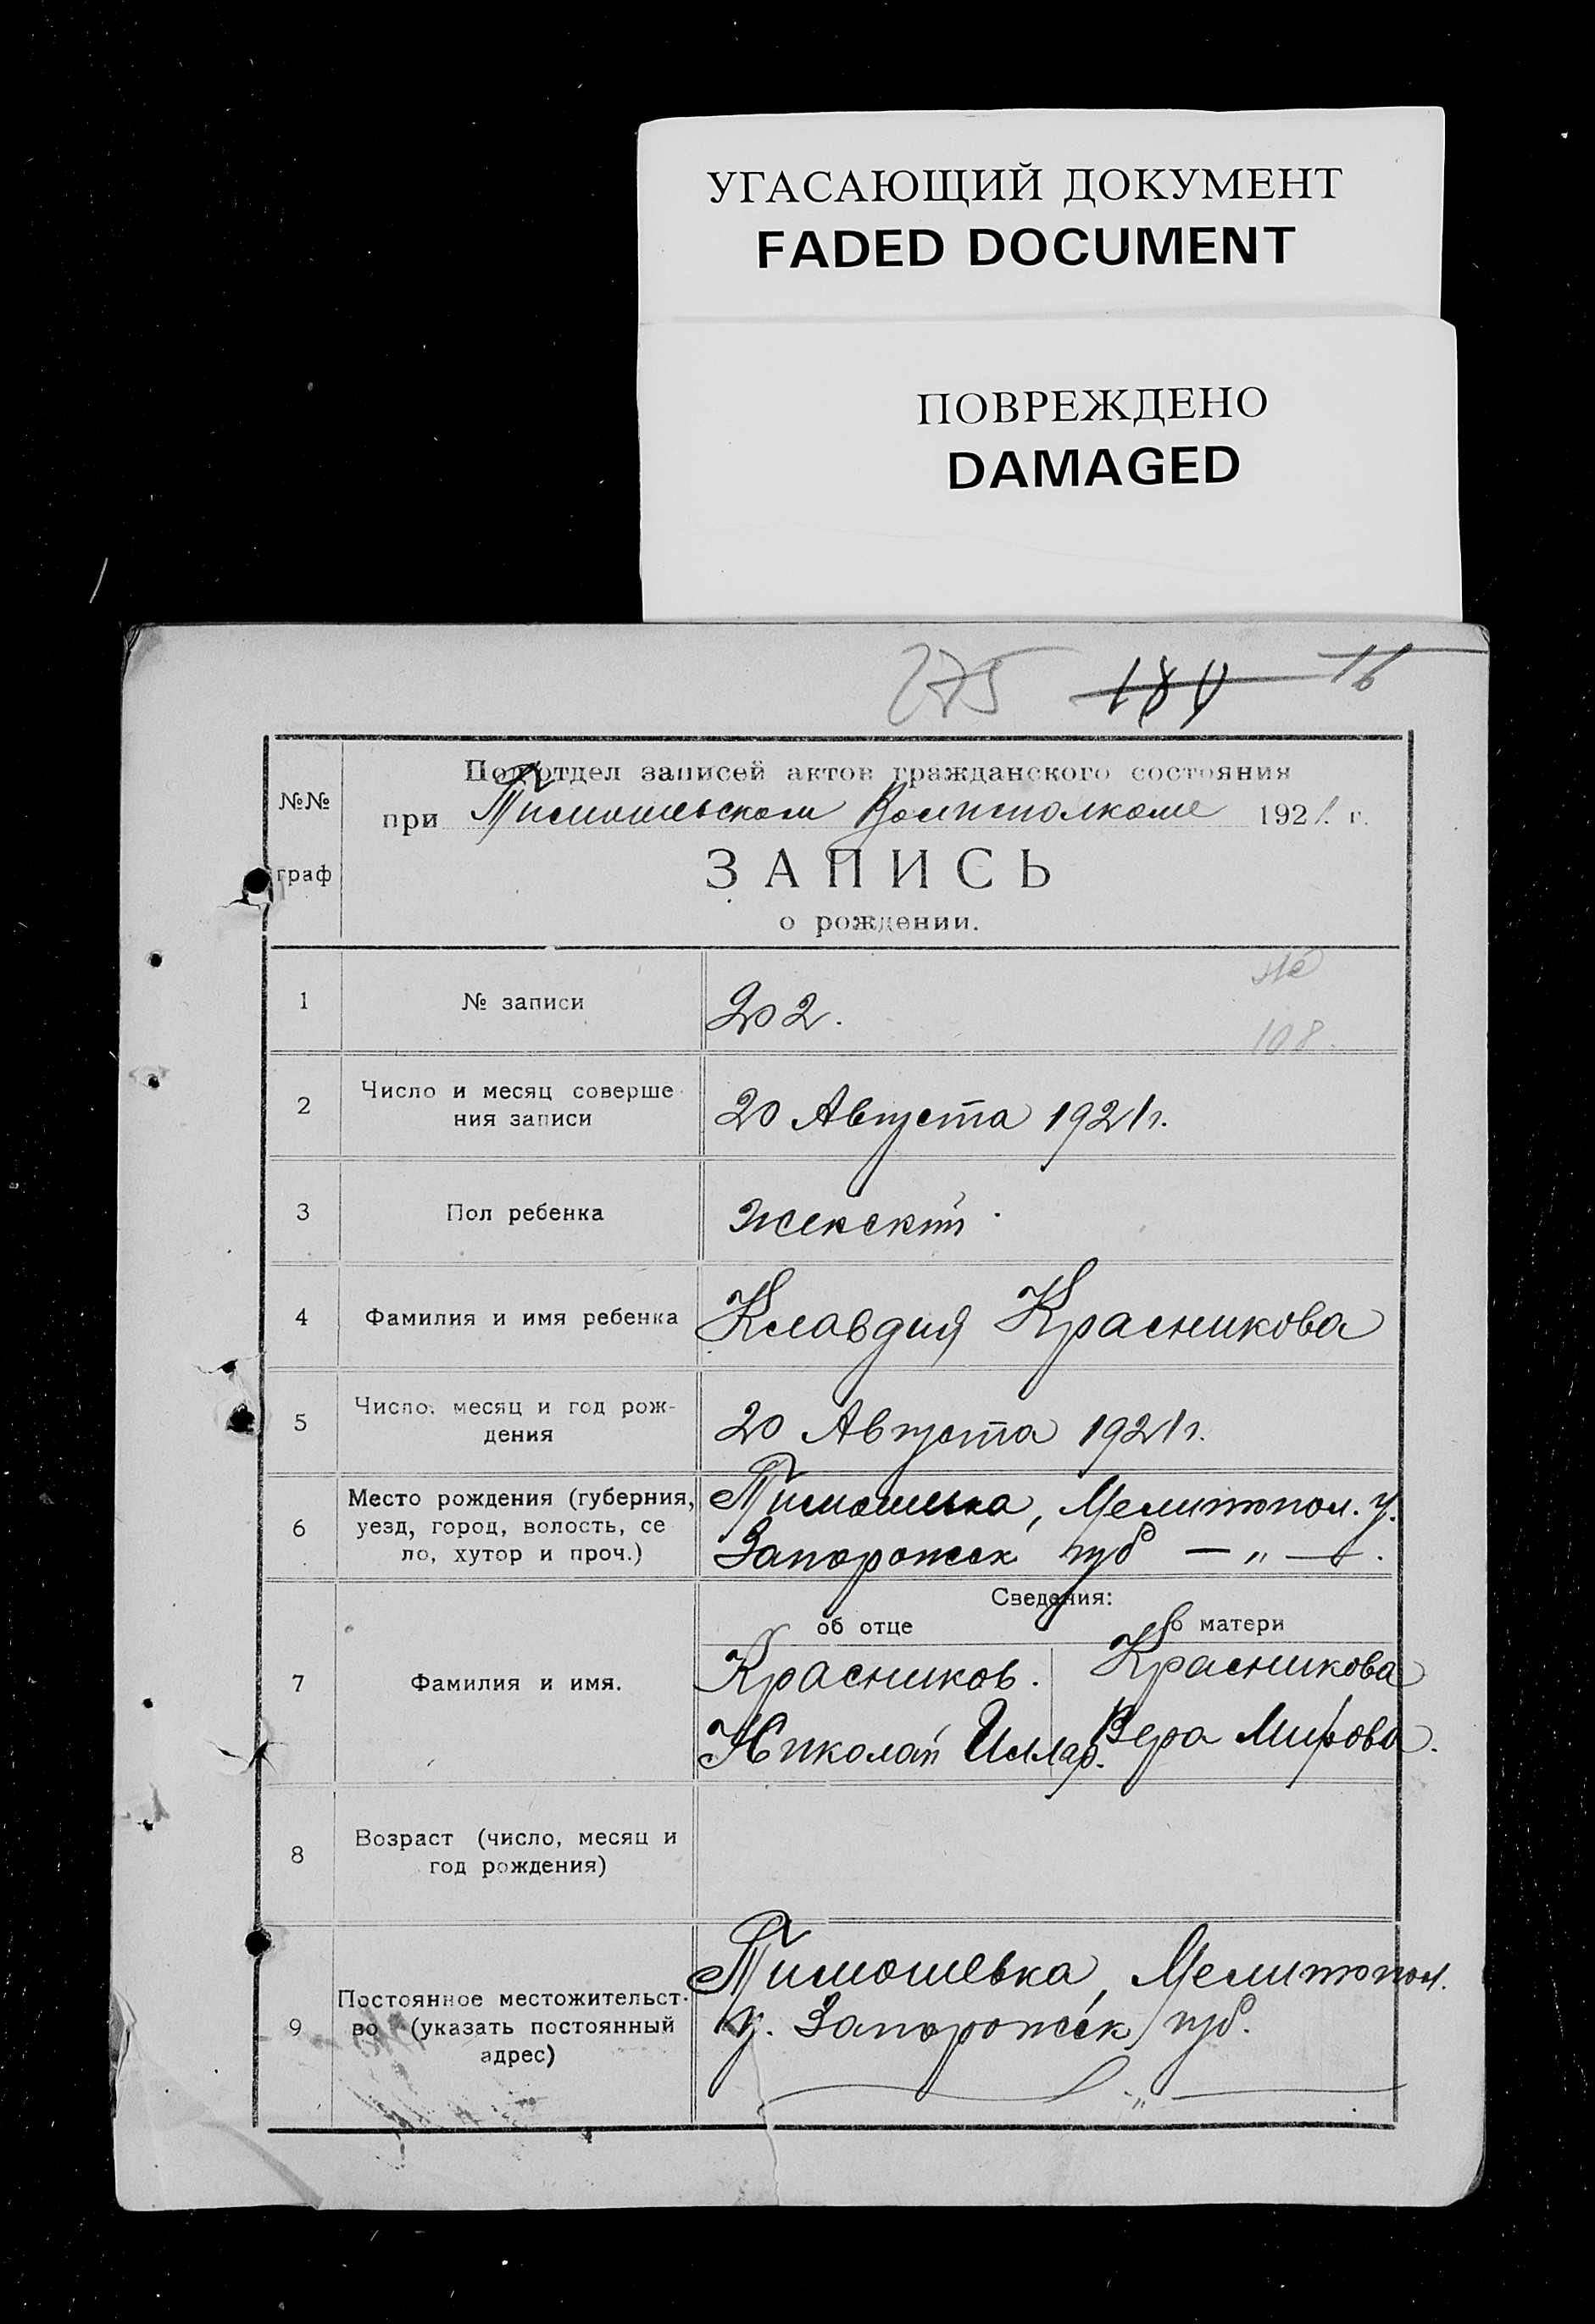 УГАСАЮЩИЙ ДОКУМЕНТ
FADED DOCUMENT
ПОВРЕЖДЕНО
DAMAGED
275 184 16
№№ граф
Подотдел записей актов гражданского состояния
при Тимошевском Волисполкоме 1921 г.
ЗАПИСЬ
о рождении.
1 № записи 202.
108.
2 Число и месяц соверше
ния записи 20 Августа 1921 г.
3 Пол ребенка женский
4 Фамилия и имя ребенка Клавдия Красникова
5 Число, месяц и год рож-
дения 20 Августа 1921 г.
6 Место рождения (губерния,
уезд, город, волость, се
ло, хутор и проч.)
Тимошевка, Мелитопол. у.
Запорожск губ — „ —.
Сведения:
об отце о матери
7 Фамилия и имя.
Красников. Красникова
Николай Иллар. Вера Мирова.
8 Возраст (число, месяц и
год рождения)
9 Постоянное местожительст-
во (указать постоянный
адрес)
Тимошевка, Мелитопол.
у. Запорожск губ.
— „ —